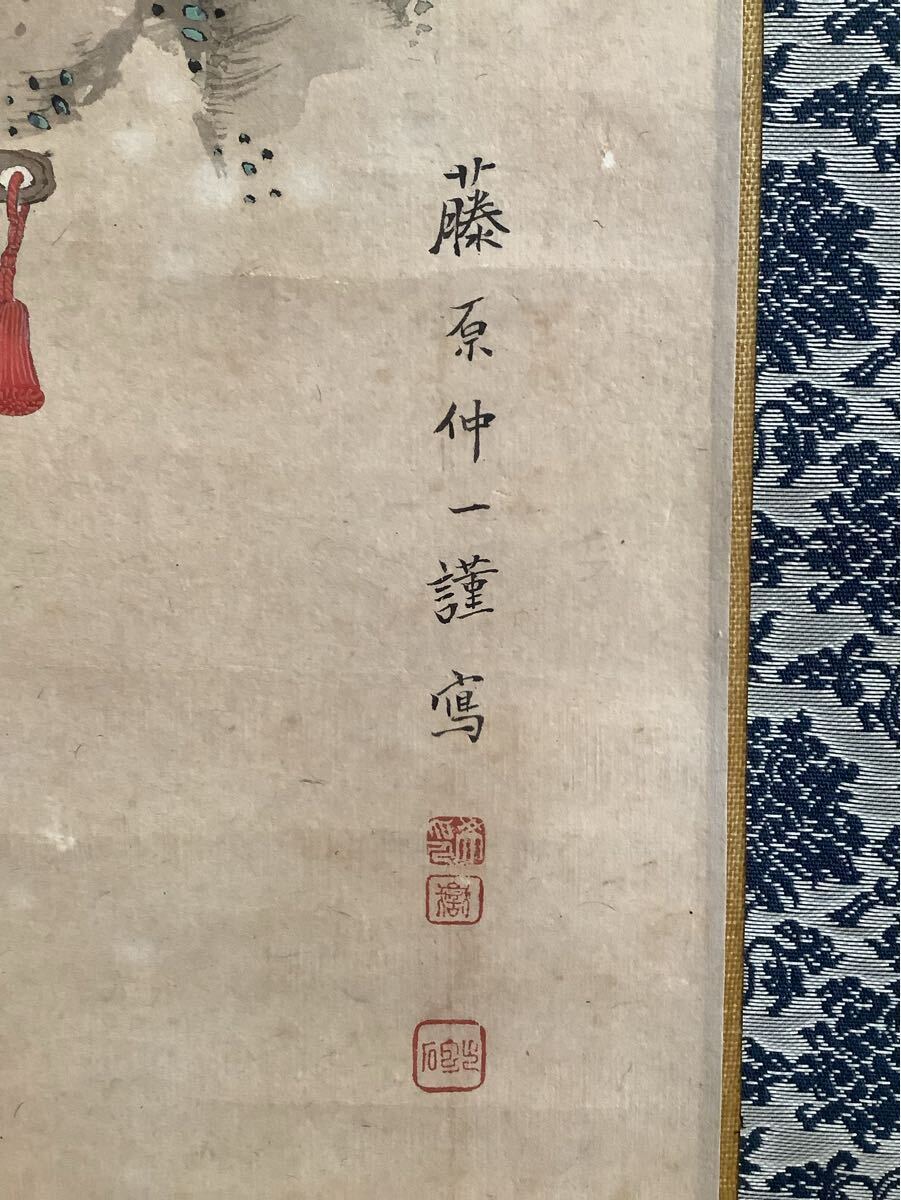 藤原仲一謹寫